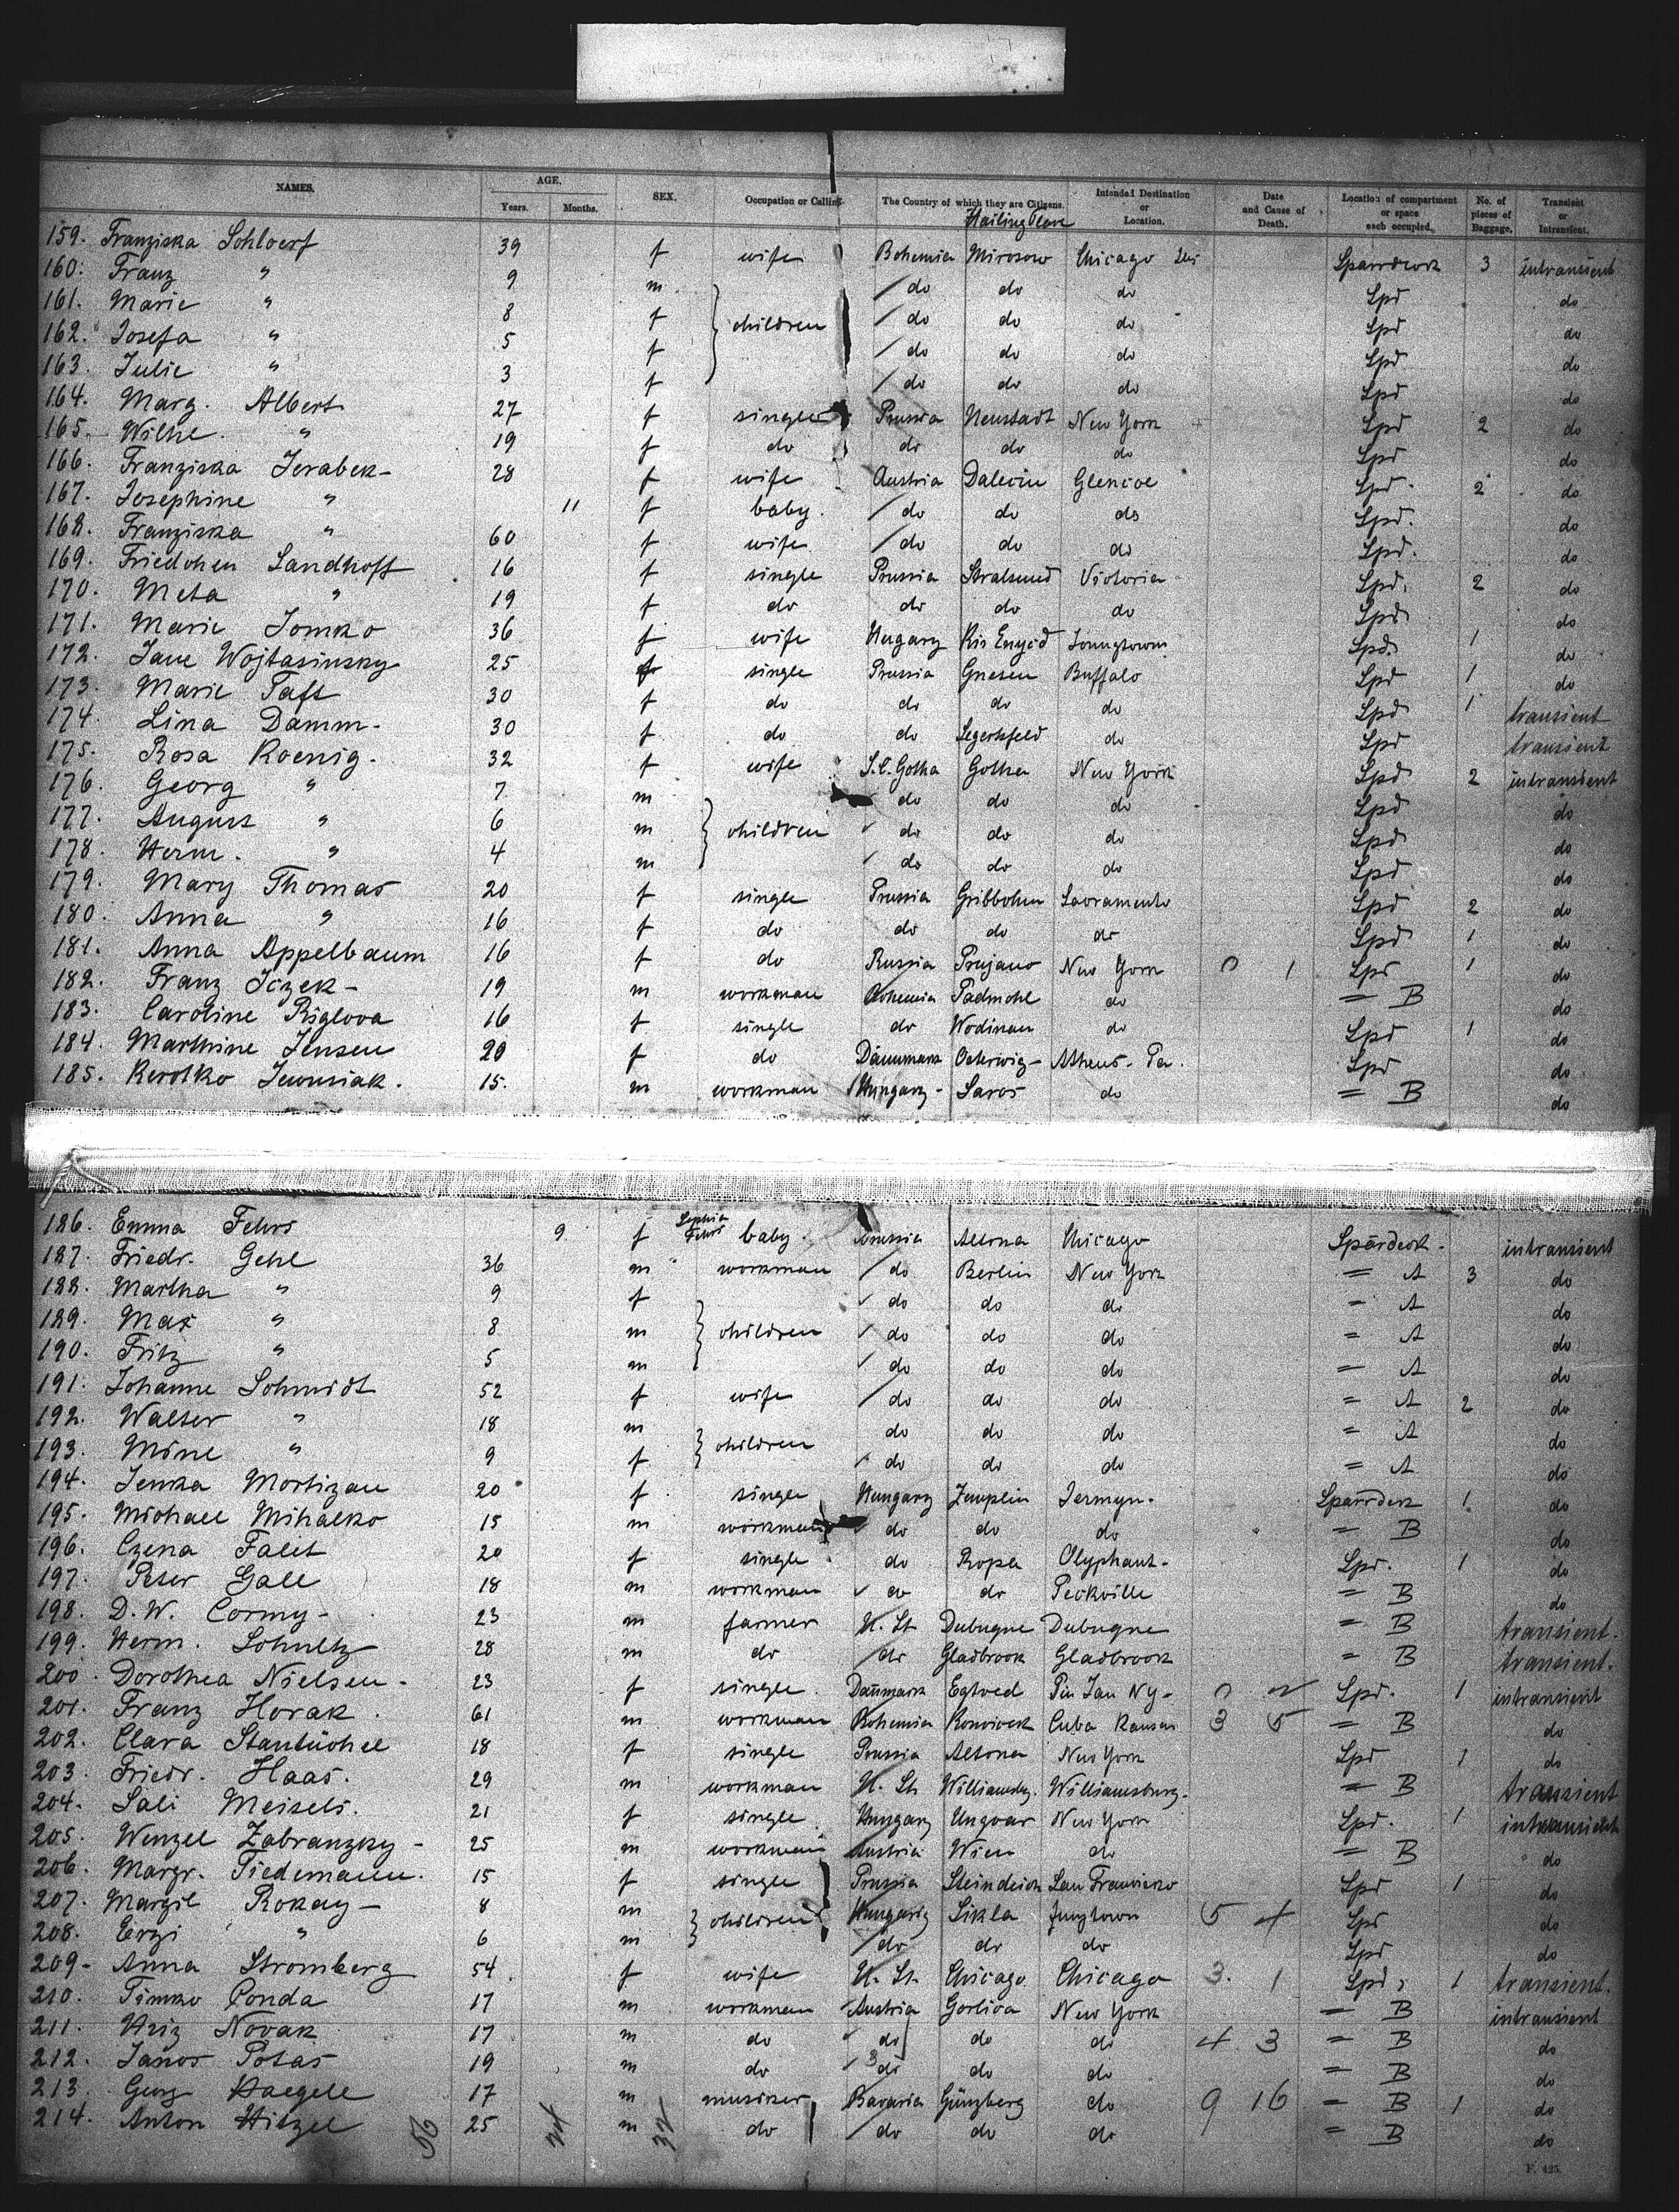 NAMES. AGE. SEX. Occupation or Calling. The Country of which they are Citizens. Intended Destination or Location. Date and Cause of Death. Location of compartment or space each occupied. No. of pieces of Baggage. Transient or Intransient.
Years. Months. Hailing Place
159. Franziska 39 f wife Bohemia Mirosow Chicago 3 intransient
160. Franz " 9 m do do do Spd do
161. Marie " 8 f children do do do Spd do
162. Josefa " 5 f do do do Spd do
163. Julie " 3 f do do do Spd do
164. Marg. Albert 27 f single Prussia Neustadt New York Spd 2 do
165. Wilhe. " 19 f do do do do Spd do
166. Franziska Jerabek 28 f wife Austria Glencoe Spd. 2 do
167. Josephine " 11 f baby. do do do Spd. do
168. Franziska " 60 f wife do do do Spd. do
169. Friedchen Landhoff 16 f single Prussia Stralsund Victoria Spd. 2 do
170. Meta " 19 f do do do do Spd do
171. Marie Tomko 36 f wife Hugary Kis Enyed Spd. 1 do
172. Jane Wojtasinsky 25 f single Prussia Gnesen Buffalo Spd 1 do
173. Marie Taft 30 f do do do do Spd 1 transient
174. Lina Damm 30 f do do do Spd transient
175. Rosa Koenig. 32 f wife S.C. Gotha Gotha New York Spd 2 intransient
176. Georg " 7 m do do do Spd do
177. August " 6 m children do do do Spd do
178. Herm. " 4 m do do do Spd do
179. Mary Thomas 20 f single Prussia Gribbohm Sacramento Spd 2 do
180. Anna " 16 f do do do do Spd 1 do
181. Anna Appelbaum 16 f do Russia New York 0 1 Spd 1 do
182. Franz 19 m workman Bohemia do = B do
183. Caroline Riglova 16 f single do Wodinan do Spd 1 do
184. Marthine Jensen 20 f do Dänmark Athens. Pa. Spd do
185. 15. m workman Hungary Saros do = B do
186. Emma Fehrs 9 f Sophia Fehrs baby. Prussia Altona Chicago Spardeck. intransient
187. Friedr. Gehl 36 m workman do Berlin New York = A 3 do
188. Martha " 9 f do do do = A do
189. Max " 8 m children do do do = A do
190. Fritz " 5 m do do do = A do
191. Johanne Schmidt 52 f wife do do do = A 2 do
192. Walter " 18 m do do do = A do
193. Mine " 9 f children do do do = A do
194. Jenka 20 f single Hungary Zemplin Jermyn. 1 do
195. Michael Mihalko 15 m workman do do do = B do
196. Czena Falet 20 f single do Ropa Olyphant Spd. 1 do
197. Peter Gall 18 m workman do do Peckville = B do
198. D. W. Cormy 23 m farmer U. St Dubuque Dubuque = B transient.
199. Herm. Schultz 28 m do do Gladbrook Gladbrook = B transient.
200. Dorothea Nielsen 23 f single. Danmark Egtved Spd. 1 intransient
201. Franz Horak. 61 m workman Bohemia Cuba Kansas 3 5 = B do
202. Clara 18 f single Prussia Altona New York Spd 1 do
203. Friedr. Haas. 29 m workman U. St. Williamsbg. Williamsburg. = B transient
204. Sali Meisels. 21 f single. Hungary Ungvar New York Spd. 1 intransient
205. Wenzel Zabranzky 25 m workman Austria Wien do = B do
206. Margr. Tiedemann. 15 f single Prussia Steindeich San Francisko Spd 1 do
207. Margit Rokay 8 m children Hungary Sikla 5 4 Spd do
208. Erzi " 6 m do do do Spd do
209. Anna Stromberg 54 f wife U. St. Chicago Chicago 3. 1 Spd, 1 transient.
210. Timko Conda 17 m workman Austria Gorlica New York = B intransient
211. Novak 17 m do do do do 4 3 = B do
212. Janos Potas 19 m do do do do = B do
213. Georg Haegele 17 m musiker Bavaria Günzberg do 9 16 = B 1 do
214. Anton Hitzel 25 m do do do do = B do
56 24 32
F. 425.